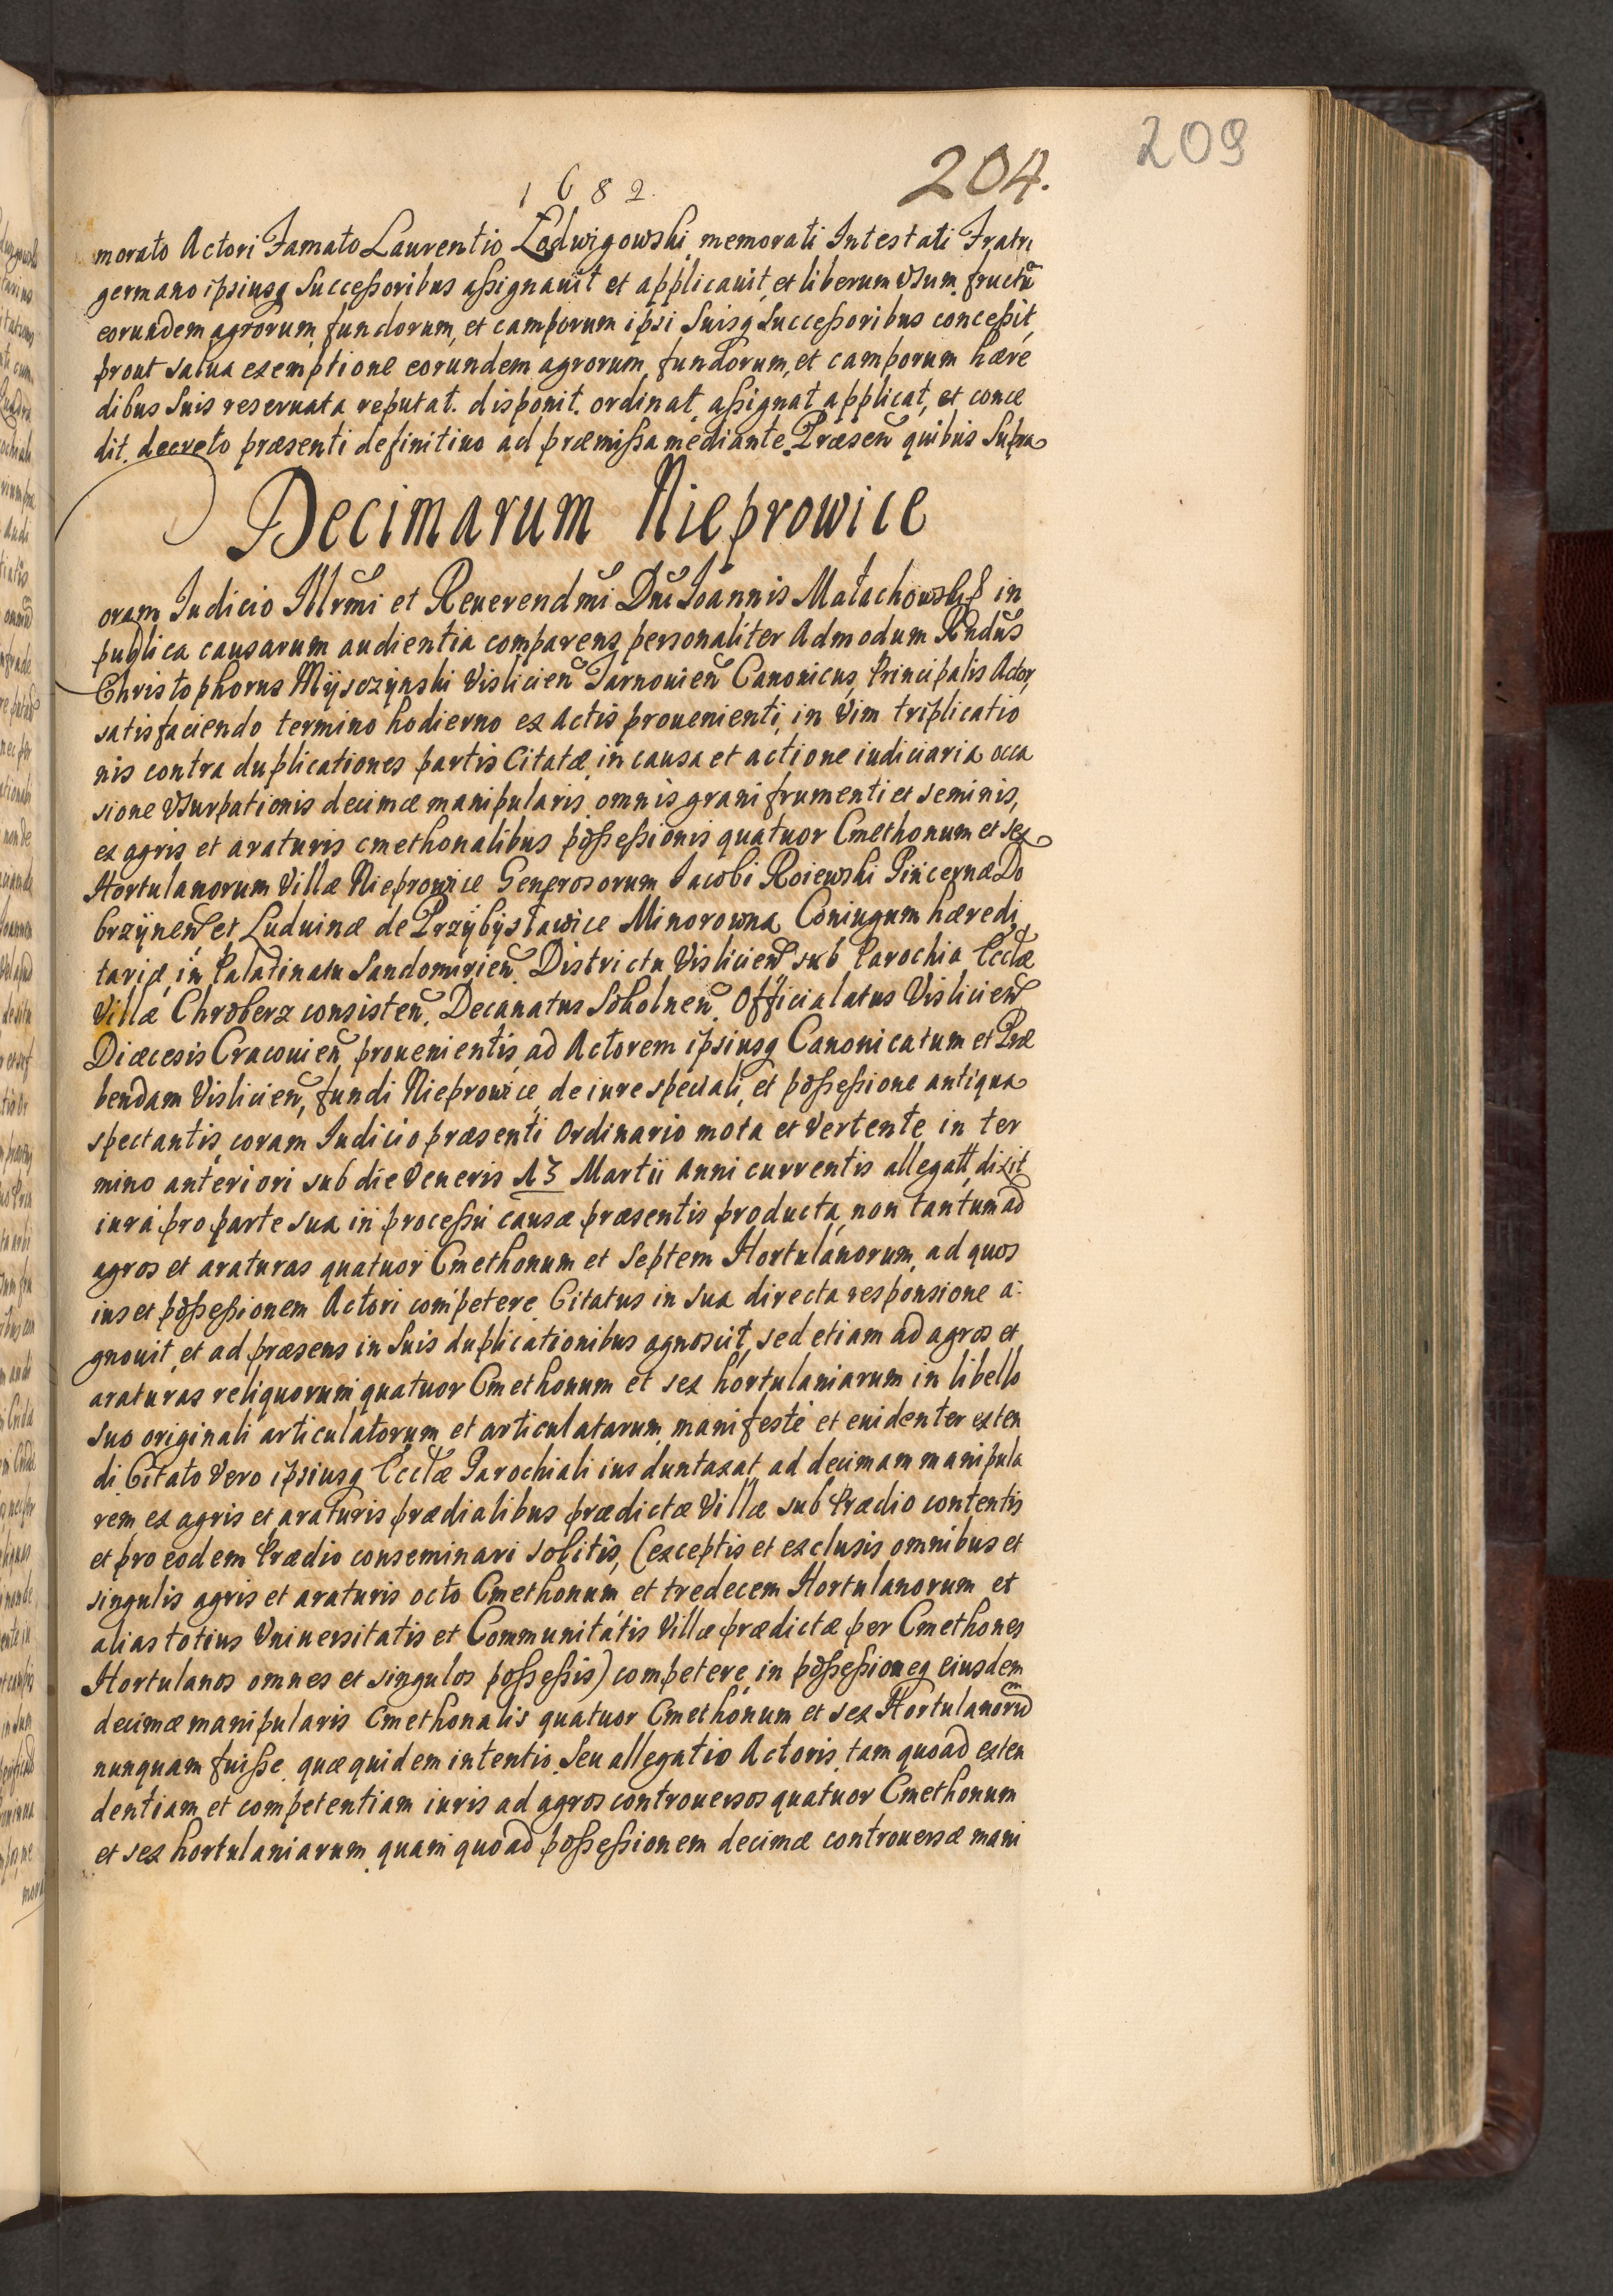 209
204.
1682.
morato Actori Famato Laurentio Lodwigowski memorati Intestati Fratri
germano ipsiusq Successoribus assignauit et applicauit, et liberum Vsum fructū
eorundem agrorum, fundorum, et camporum ipsi Suisq Successoribus concessit,
prout salua exemptione eorundem agrorum, fundorum, et camporum hære
dibus Suis reseruata reputat. disponit. ordinat, assignat applicat, et conce
dit. decreto præsenti definitiuo ad præmissa mediante. Præsen̄ quibus Supra
Decimarum Nieprowice
Coram Iudicio Illrmi et Reuerendmi Dni Ioannis Małachowski & in
publica causarum audientia comparens personaliter Admodum Rndus
Christophorus Mÿsczÿnski Vislicien̄ Tarnouien̄ Canonicus, Principalis Actor,
satisfaciendo termino hodierno ex Actis prouenienti, in Vim triplicatio
nis contra duplicationes partis Citatæ, in causa et actione iudiciaria occa
sione Vsurpationis decimæ manipularis omnis grani frumenti et seminis,
ex agris et araturis cmethonalibus possessionis quatuor Cmethonum et sex
Hortulanorum Villæ Nieprowice Generosorum Iacobi Roiewski Pincernæ Do
brzÿnen̄ et Luduinæ de Przÿbÿsławice Minorowna Coniugum hæredi
tariæ, in Palatinatu Sandomirien̄. Districtu Vislicien̄ sub Parochia Ecclæ
Villæ Chroberz consisten̄. Decanatus Sokolnen̄. Officialatus Vislicien̄
Diæcesis Cracouien̄ prouenientis, ad Actorem ipsiusq Canonicatum et Præ
bendam Vislicien̄, fundi Nieprowice, de iure speciali, et possessione antiqua
spectantis, coram Iudicio præsenti Ordinario mota et Vertente, in ter
mino anteriori sub die Veneris 13 Martii Anni currentis allegatt, dixit
iura pro parte sua in processu causæ præsentis producta, non tantum ad
agros et araturas quatuor Cmethonum et Septem Hortulanorum, ad quos
ius et possessionem Actori competere Citatus in sua directa responsione a:
gnouit, et ad præsens in Suis duplicationibus agnoscit, sed etiam ad agros et
araturas reliquorum quatuor Cmethonum et sex hortulaniarum in libello
suo originali articulatorum et articulatarum, manifestè et euidenter exten
di. Citato Vero ipsiusq Ecclæ Parochiali ius duntaxat ad decimam manipula
rem ex agris et araturis prædialibus prædictæ Villæ sub Prædio contentis
et pro eodem Prædio conseminari solitis, (exceptis et exclusis omnibus et
singulis agris et araturis octo Cmethonum et tredecem Hortulanorum et
alias totius Vniuersitatis et Communitatis Villæ prædictæ per Cmethones
Hortulanos omnes et singulos possessis) competere, in possessioneq eiusdem
decimæ manipularis Cmethonalis quatuor Cmethonum et sex Hortulanorum
nunquam fuisse. quæ quidem intentio, Seu allegatio Actoris, tam quoad exten
dentiam et competentiam iuris ad agros controuersos quatuor Cmethonum
et sex hortulaniarum, quam quoad possessionem decimæ controuersæ mani